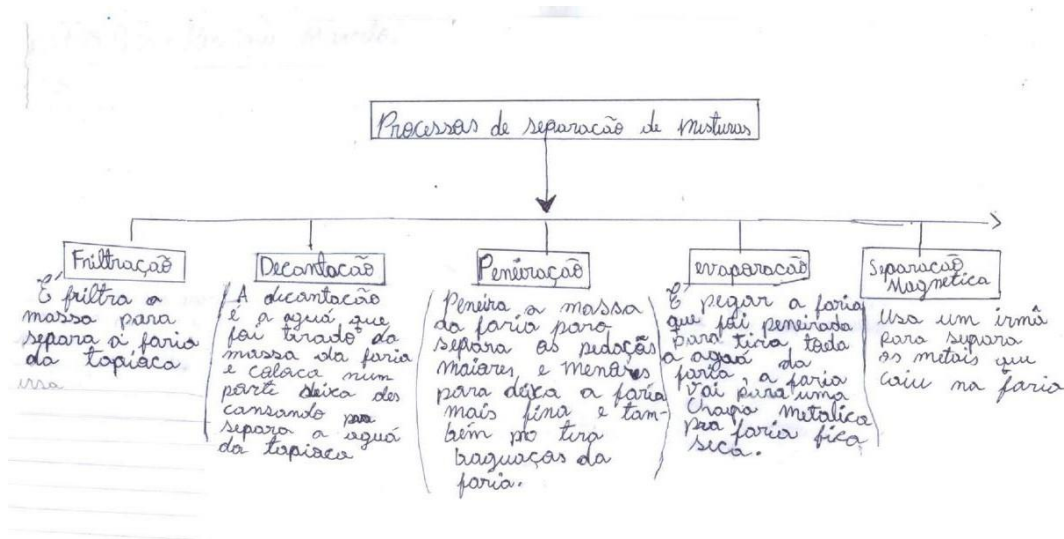 Processos de separação de misturas
Friltração
É friltra a
massa para
separa a faria
da tapiaca
issa
Decantacão
A decantacão
é a aguá que
foi tirado da
massa da faria
e colaca num
parte deixa des
cansando pra
separa a aguá
da tapiaca
Peneiração
Peneira a massa
da faria para
separa os pedações
maiores, e menores
para deixa a faria
mais fina e tam-
bém pro tira
baguaços da
faria.
evaporacão
É pegar a faria
que foi peneirada
para tira toda
a aguá da
faria, a faria
vai para uma
Chapa metalica
pra faria fica
seca.
Separacão
Magnetica
Usa um irmã
para supara
os metais que
caiu na faria